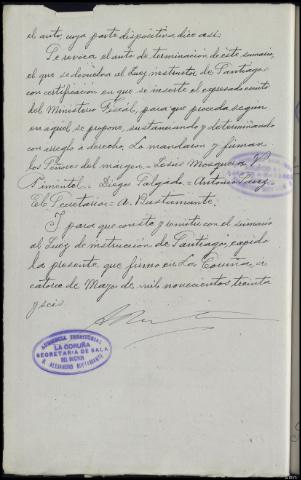 el auto, cuya parte dispositiva dice asi:
Se revoca el auto de terminación de este sumario,
el que se devolverá al Juez instructor de Santiago
con certificación en que se inserte el expresado escrito
del Ministerio Fiscal, para que proceda segun
en aquel se propone, sustanciando y determinando
con arreglo a derecho. Lo mandaron y firman
los Señores del margen = Jesús Mosquera V.
Pimentel. = Diego Salgado = Antonio
El Secretario = A. Bustamante.
Y para que conste y remitir con el sumario
al Juez de instrucción de Santiago, expido
la presente, que firmo en La Coruña, a
catorce de Mayo de mil novecientos treinta
y seis
AUDIENCIA TERRITORIAL
LA CORUÑA
SECRETARIA DE SALA
DEL DOCTOR
D. ALEJANDRO BUSTAMANTE